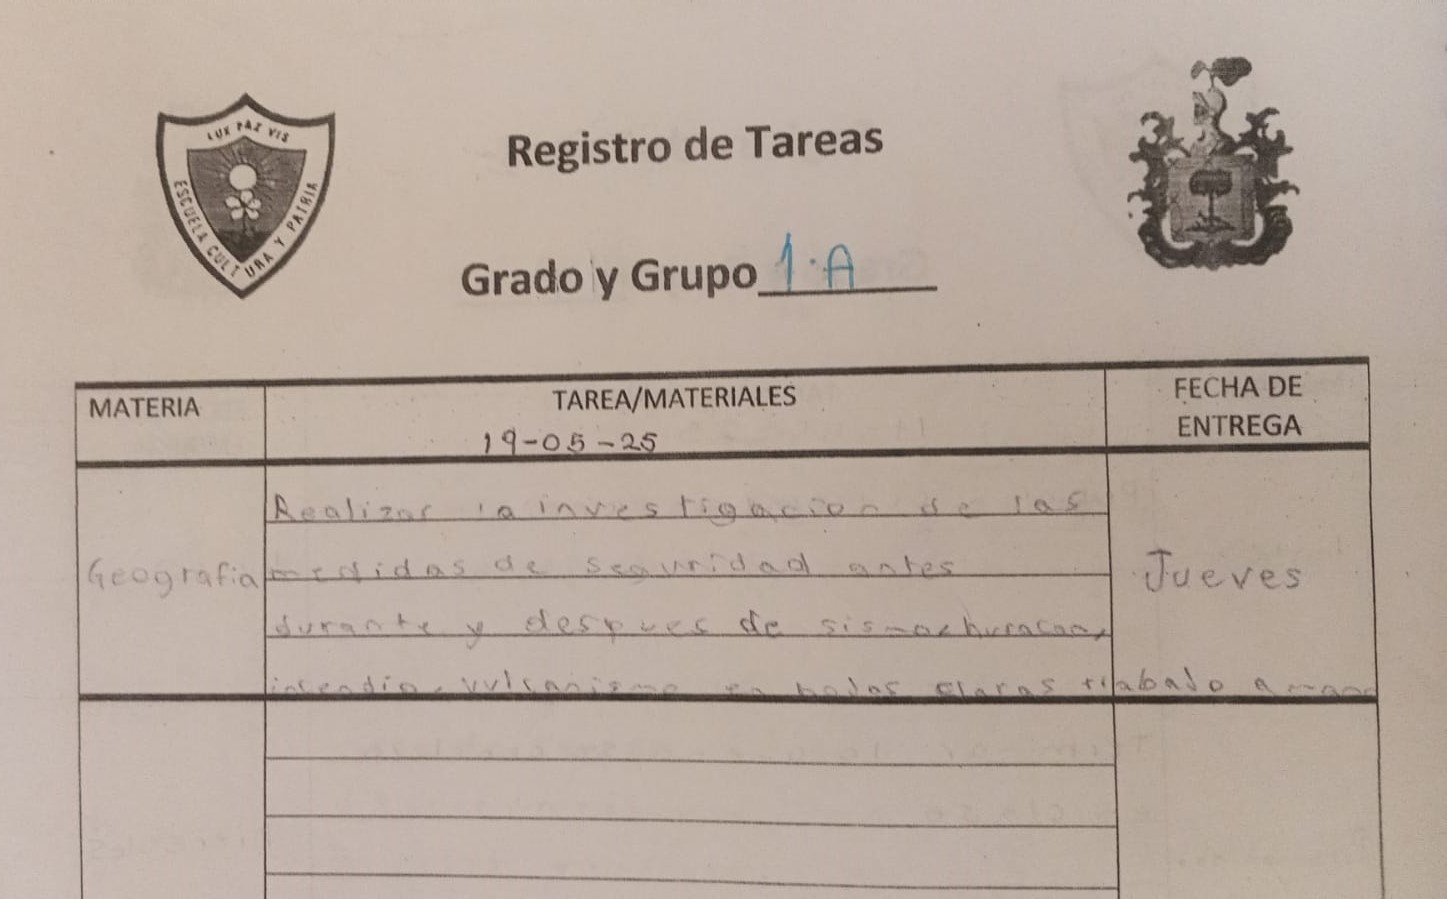 LUX PAZ VIS
ESCUELA CULTURA Y PATRIA
Registro de Tareas
Grado y Grupo 1·A
MATERIA
TAREA/MATERIALES
19-05-25
FECHA DE
ENTREGA
Geografia
Realizar la investigacion de las
medidas de seguridad antes
durante y despues de sismos, huracan,
incendio, vulcanismo en hojas claras trabajo a mano
Jueves